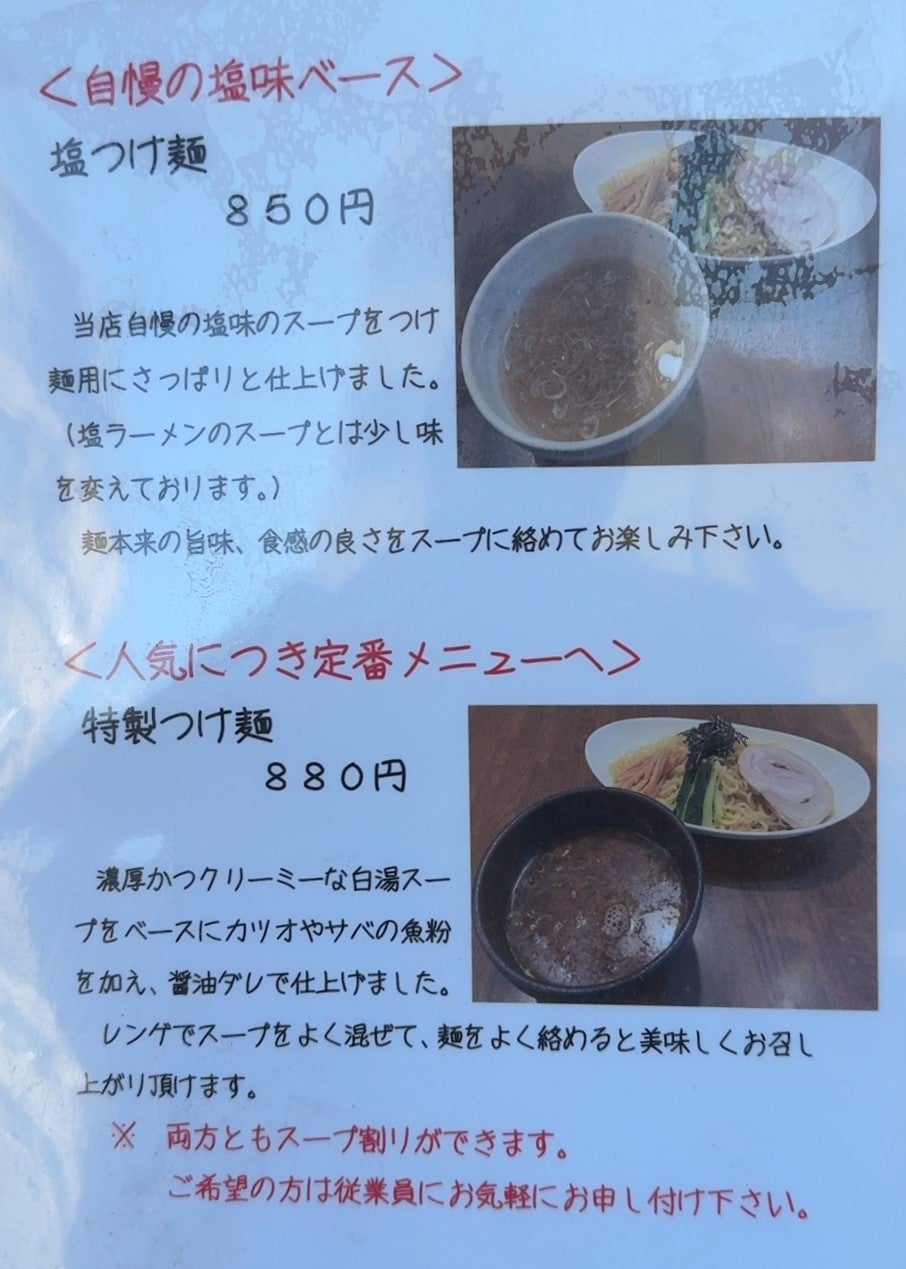 ＜自慢の塩味ベース＞
塩つけ麺
８５０円
当店自慢の塩味のスープをつけ
麺用にさっぱりと仕上げました。
（塩ラーメンのスープとは少し味
を変えております。）
麺本来の旨味、食感の良さをスープに絡めてお楽しみ下さい。
＜人気につき定番メニューへ＞
特製つけ麺
８８０円
濃厚かつクリーミーな白湯スー
プをベースにカツオやサバの魚粉
を加え、醤油ダレで仕上げました。
レンゲでスープをよく混ぜて、麺をよく絡めると美味しくお召し
上がり頂けます。
※　両方ともスープ割りができます。
ご希望の方は従業員にお気軽にお申し付け下さい。